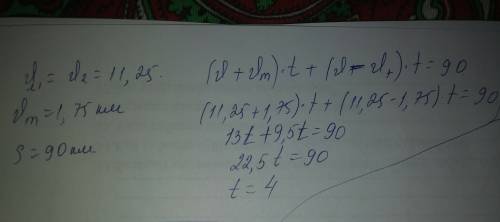 ϑ₁ = ϑ₂ = 11,25.
ϑm = 1,75 км
S = 90 км.
(ϑ + ϑm)·t + (ϑ - ϑт)·t = 90
(11,25+1,75)·t + (11,25-1,75) t = 90
13t + 9,5t = 90
22,5t = 90
t = 4